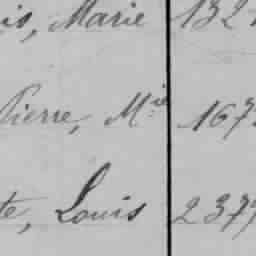 is, Marie 132
Pierre, Mie 167
te, Louis 237